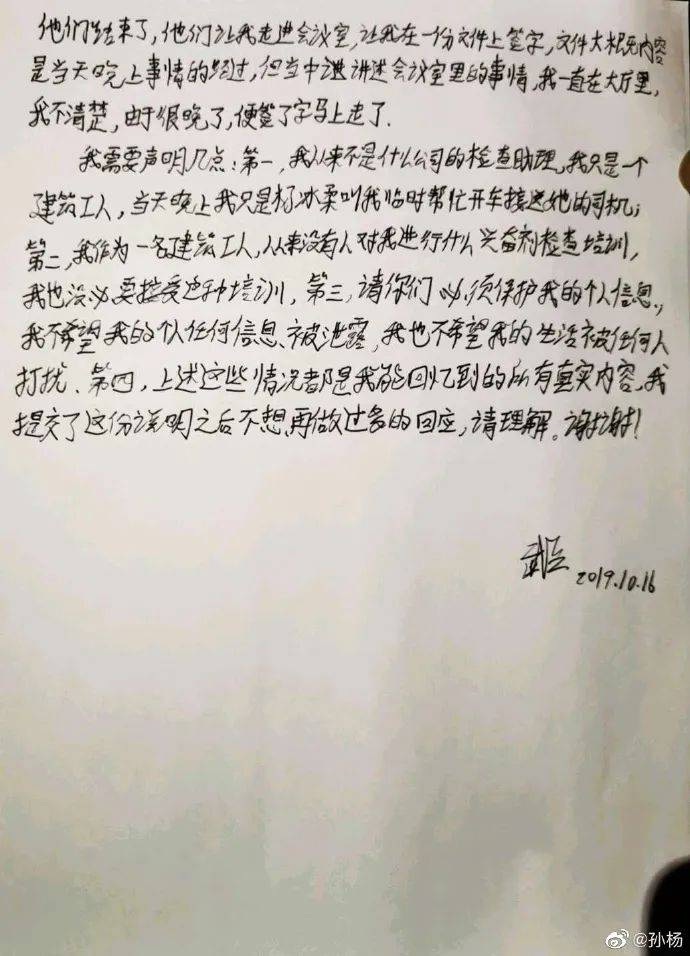 他们结束了，他们让我走进会议室，让我在一份文件上签字，文件大概内容
是当天晚上事情的经过，但当中讲述会议室里的事情，我一直在大厅里，
我不清楚，由于很晚了，便签了字马上走了.
我需要声明几点：第一，我从来不是什么公司的检查助理，我只是一个
建筑工人，当天晚上我只是杨冰柔叫我临时帮忙开车接送她的司机；
第二，我作为一名建筑工人，从来没有人对我进行什么兴奋剂检查培训，
我也没必要接受这种培训，第三，请你们必须保护我的个人信息，
我不希望我的个人任何信息被泄露，我也不希望我的生活被任何人
打扰.第四，上述这些情况都是我能回忆到的所有真实内容，我
提交了这份说明之后不想再做过多的回应，请理解。谢谢！
2019.10.16
@孙杨